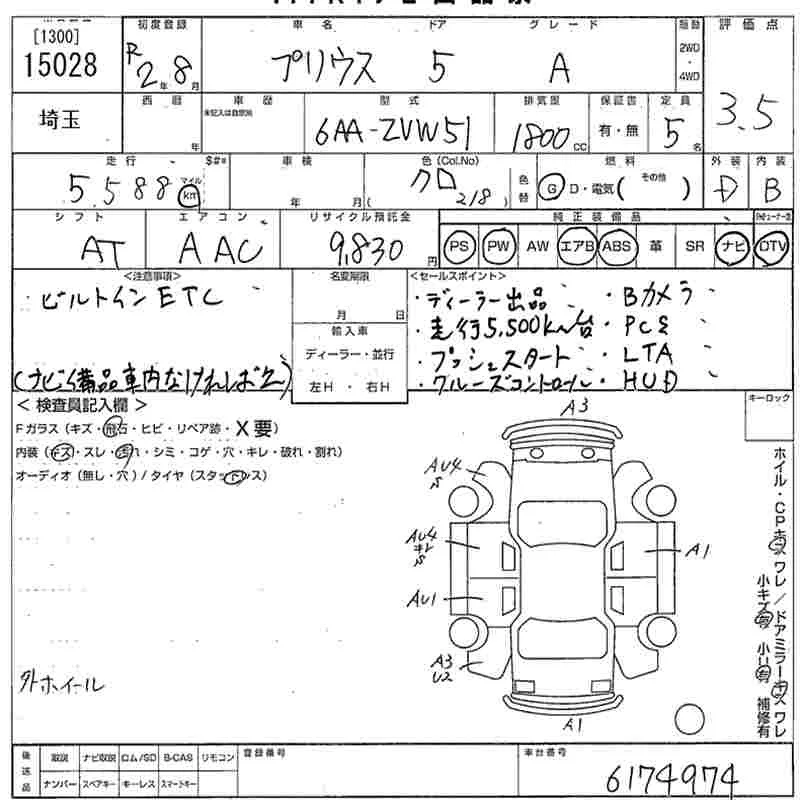 [1300]
15028
初度登録 車名 ドア グレード 駆動 評価点
R2年8月 プリウス 5 A 2WD・4WD
3.5
埼玉
西暦 車歴 型式 排気量 保証書 定員
年 6AA-ZVW51 1800cc 有・無 5名
走行 $#* 車検 色(Col.No) 燃料 外装 内装
5,588 マイル km 年 月 クロ (218) 色替 G D・電気( その他 ) D B
シフト エアコン リサイクル預託金 純正装備品
AT AAC 9,830円 PS PW AW エアB ABS 革 SR ナビ DTV
<注意事項> 名変期限 <セールスポイント>
ビルトインETC
月 日
・ディーラー出品 ・Bカメラ
輸入車
・走行5,500km台 ・PCS
ディーラー・並行
・プッシュスタート ・LTA
(ナビ備品車内なければ欠)
左H ・ 右H
・クルーズコントロール ・HUD
< 検査員記入欄 >
キーロック
Fガラス(キズ・飛石・ヒビ・リペア跡・X要)
内装(キズ・スレ・汚れ・シミ・コゲ・穴・キレ・破れ・割れ)
オーディオ(無し・穴)/タイヤ(スタッドレス)
A3
AU4
S
AU4
キレ
S
A1
AU1
A3
U2
A1
ホイル・CPキズ ワレ/ドアミラーキズ ワレ
小キズ有 小U有 補修有
外ホイール
後送品 取説 ナビ取説 ロム/SD B-CAS リモコン 登録番号 車台番号
ナンバー スペアキー キーレス スマートキー
6174974